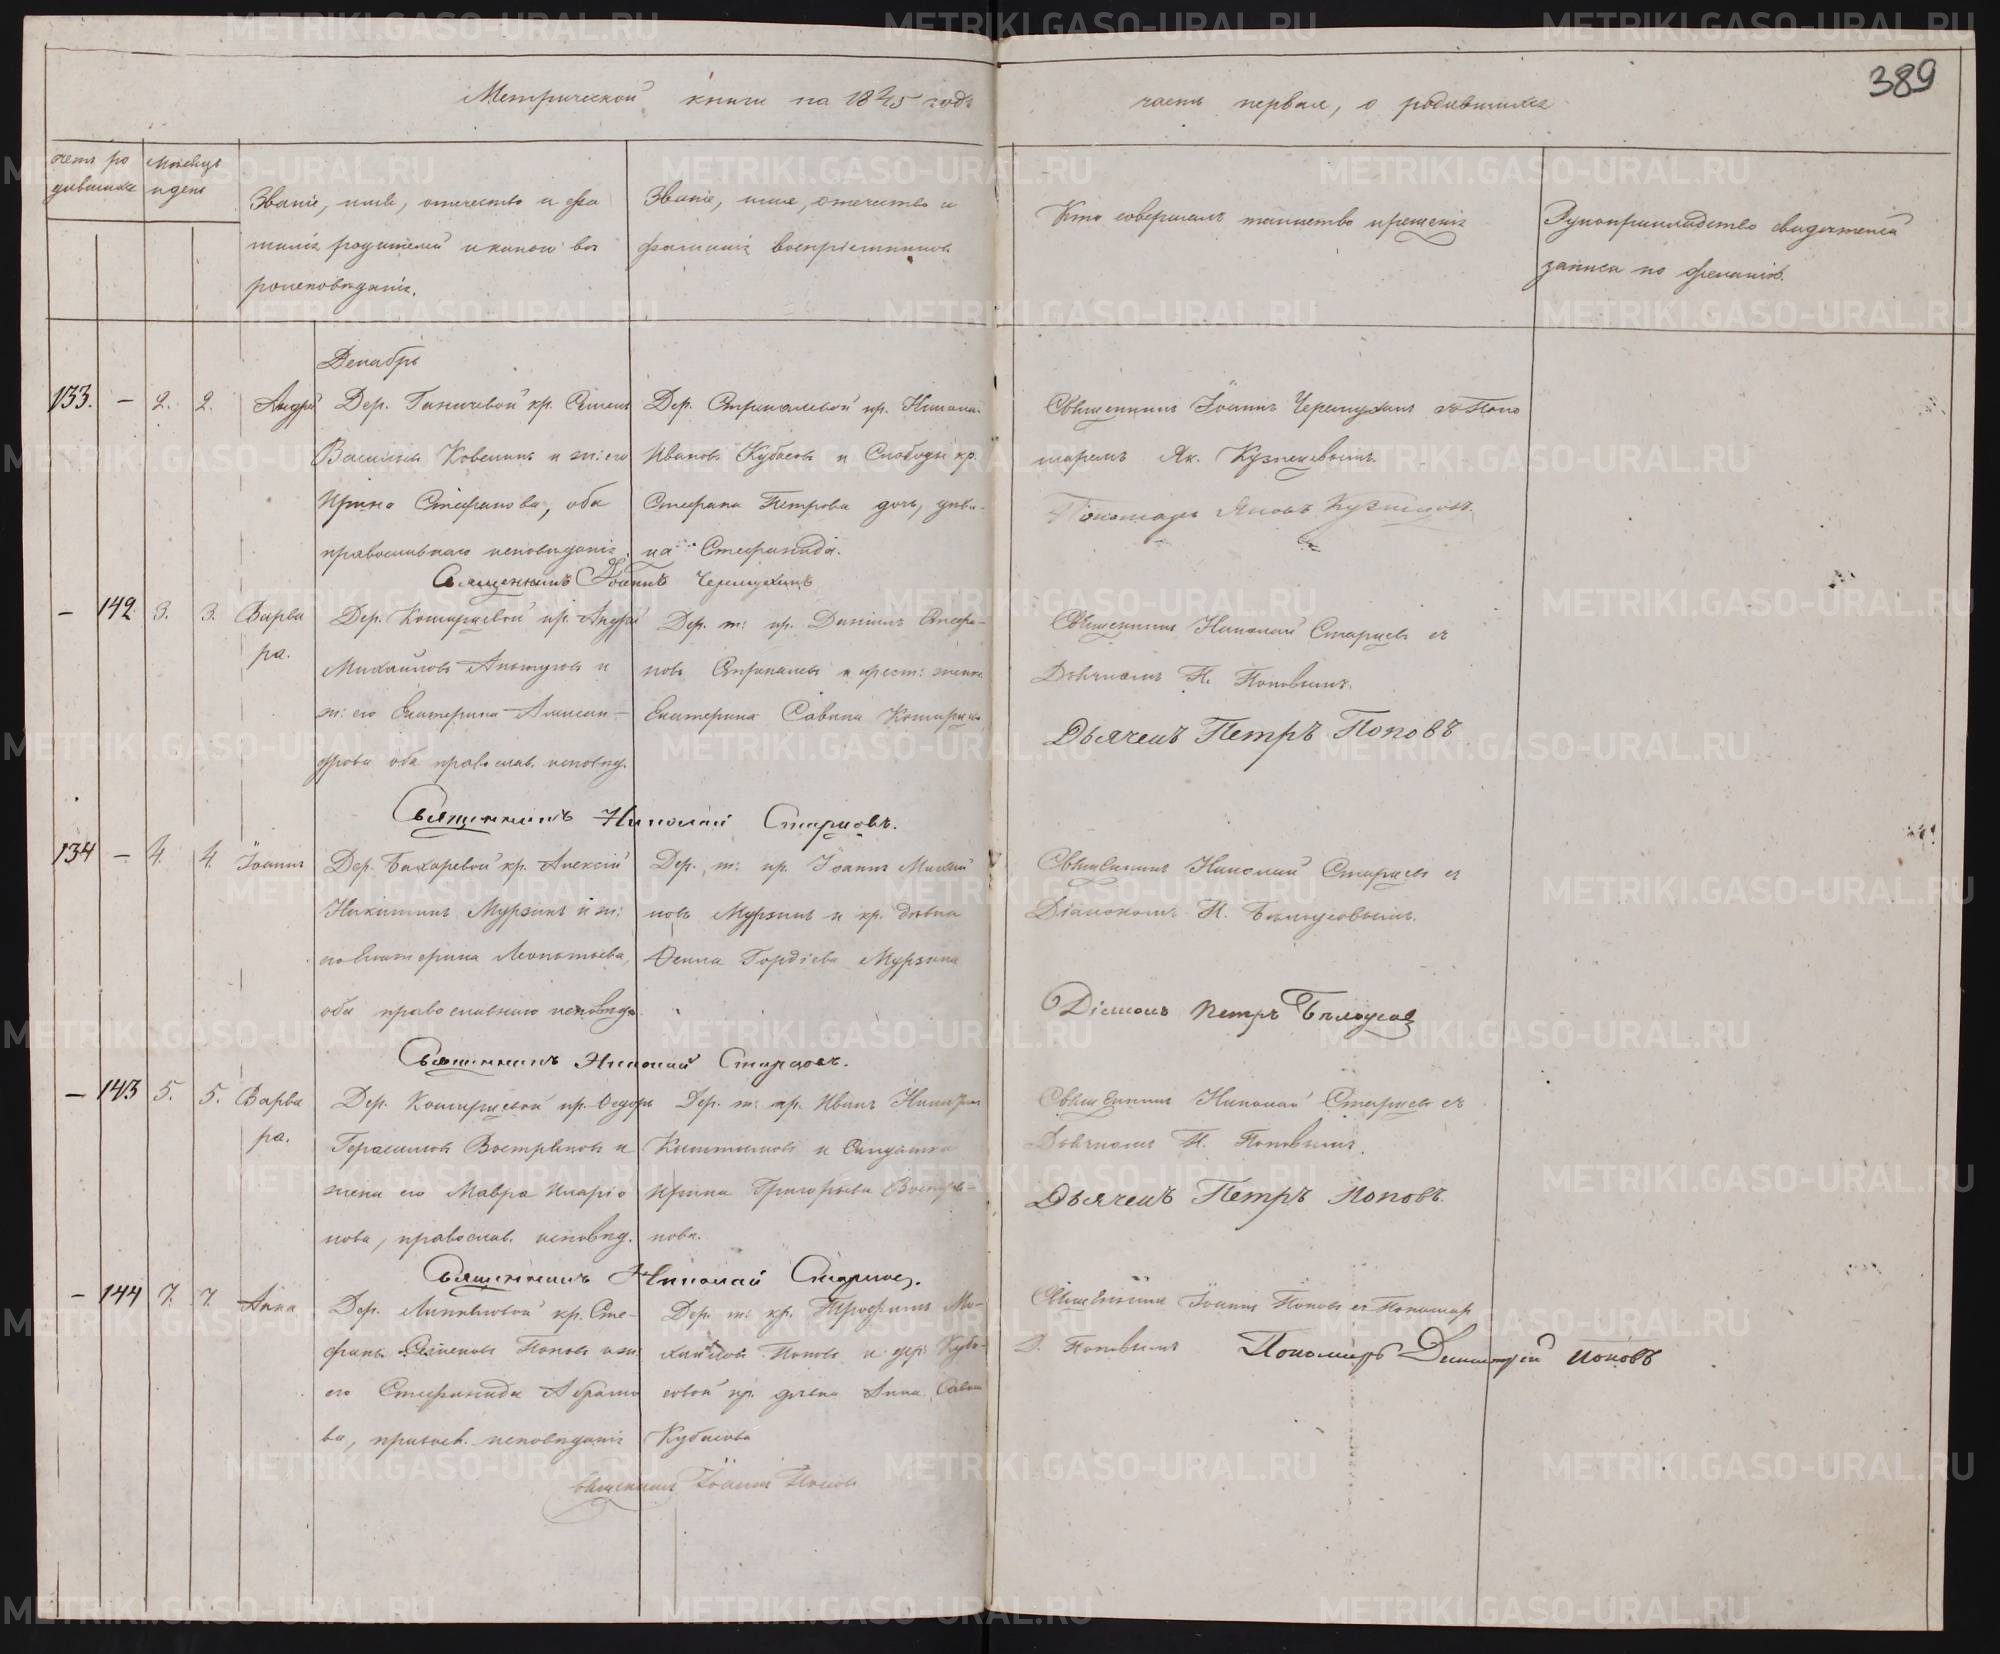 389
Метрической книги на 1845 годъ
часть первая, о родившихся
счетъ ро
дившихся
Мѣсяцъ
и день
Званіе, имя, отчество и фа
милія родителей и какого вѣ
роисповѣданія.
Званіе, имя, отчество и
фамилія воспріемниковъ
Кто совершалъ таинство крещенія
Рукоприкладство свидетелей
записи по желанію.
Декабрь
133. – 2. 2. Андрей
Дер. Ганичевой кр. Семенъ
Васильевъ Ковелинъ и ж: его
Ирина Стефанова, оба
православнаго исповѣданія.
Дер. Стрикалевой кр. Никола
Ивановъ Кубасовъ и Слободы кр.
Стефана Петрова дочь, дѣви-
ца Стефанида.
Священникъ Іоаннъ Черемухинъ съ Поно
маремъ Як. Кузнецовымъ.
Пономарь Яковъ Кузнецовъ.
Священникъ Іоаннъ Черемухинъ
– 142 3. 3. Варва
ра.
Дер. Комарицевой кр. Андрей
Михайловъ и
ж: его Екатерина Алексан-
дрова оба православ. исповѣд.
Дер. т: кр. Даніилъ Стефа-
новъ Стрикалевъ и крест: жена
Екатерина Савина
Священникъ Николай Старцевъ съ
Дьячкомъ П. Поповымъ.
Дьячекъ Петръ Поповъ
Священникъ Николай Старцовъ.
134 – 4. 4. Іоаннъ
Дер. Бахаревой кр. Алексій
Никитинъ Мурзинъ и ж:
его Екатерина Леонтьева,
оба православнаго исповѣда.
Дер. т: кр. Іоаннъ Михай
ловъ Мурзинъ и кр. дѣвка
Фекла Гордіева Мурзина
Священникъ Николай Старцевъ съ
Діакономъ П. Бѣлоусовымъ.
Діаконъ Петръ Бѣлоусов
Священникъ Николай Старцовъ.
– 143 5. 5. Варва
ра.
Дер. Комарицевой кр. Федоръ
Герасимовъ Востряковъ и
жена его Мавра Иларіо
нова, православ. исповѣд.
Дер. т: кр. Иванъ
и Солдатка
Ирина Григорьева Востря-
кова.
Священникъ Николай Старцевъ съ
Дьячкомъ П. Поповымъ.
Дьячекъ Петръ Поповъ.
Священникъ Николай Старцов.
– 144 7. 7. Анна
Дер. Липняговой кр. Сте-
фанъ Семеновъ Поповъ и ж:
его Стефанида Абрамо
ва, правосл. исповѣданія
Дер. т: кр. Трофимъ Ми-
хайловъ Поповъ и дер. Куба-
совой кр. дѣвка Анна Савина
Кубасова
Священникъ Іоаннъ Поповъ съ Пономар
Д. Поповымъ Пономарь Димитрій Поповъ
Священникъ Іоаннъ Поповъ
METRIKI.GASO-URAL.RU